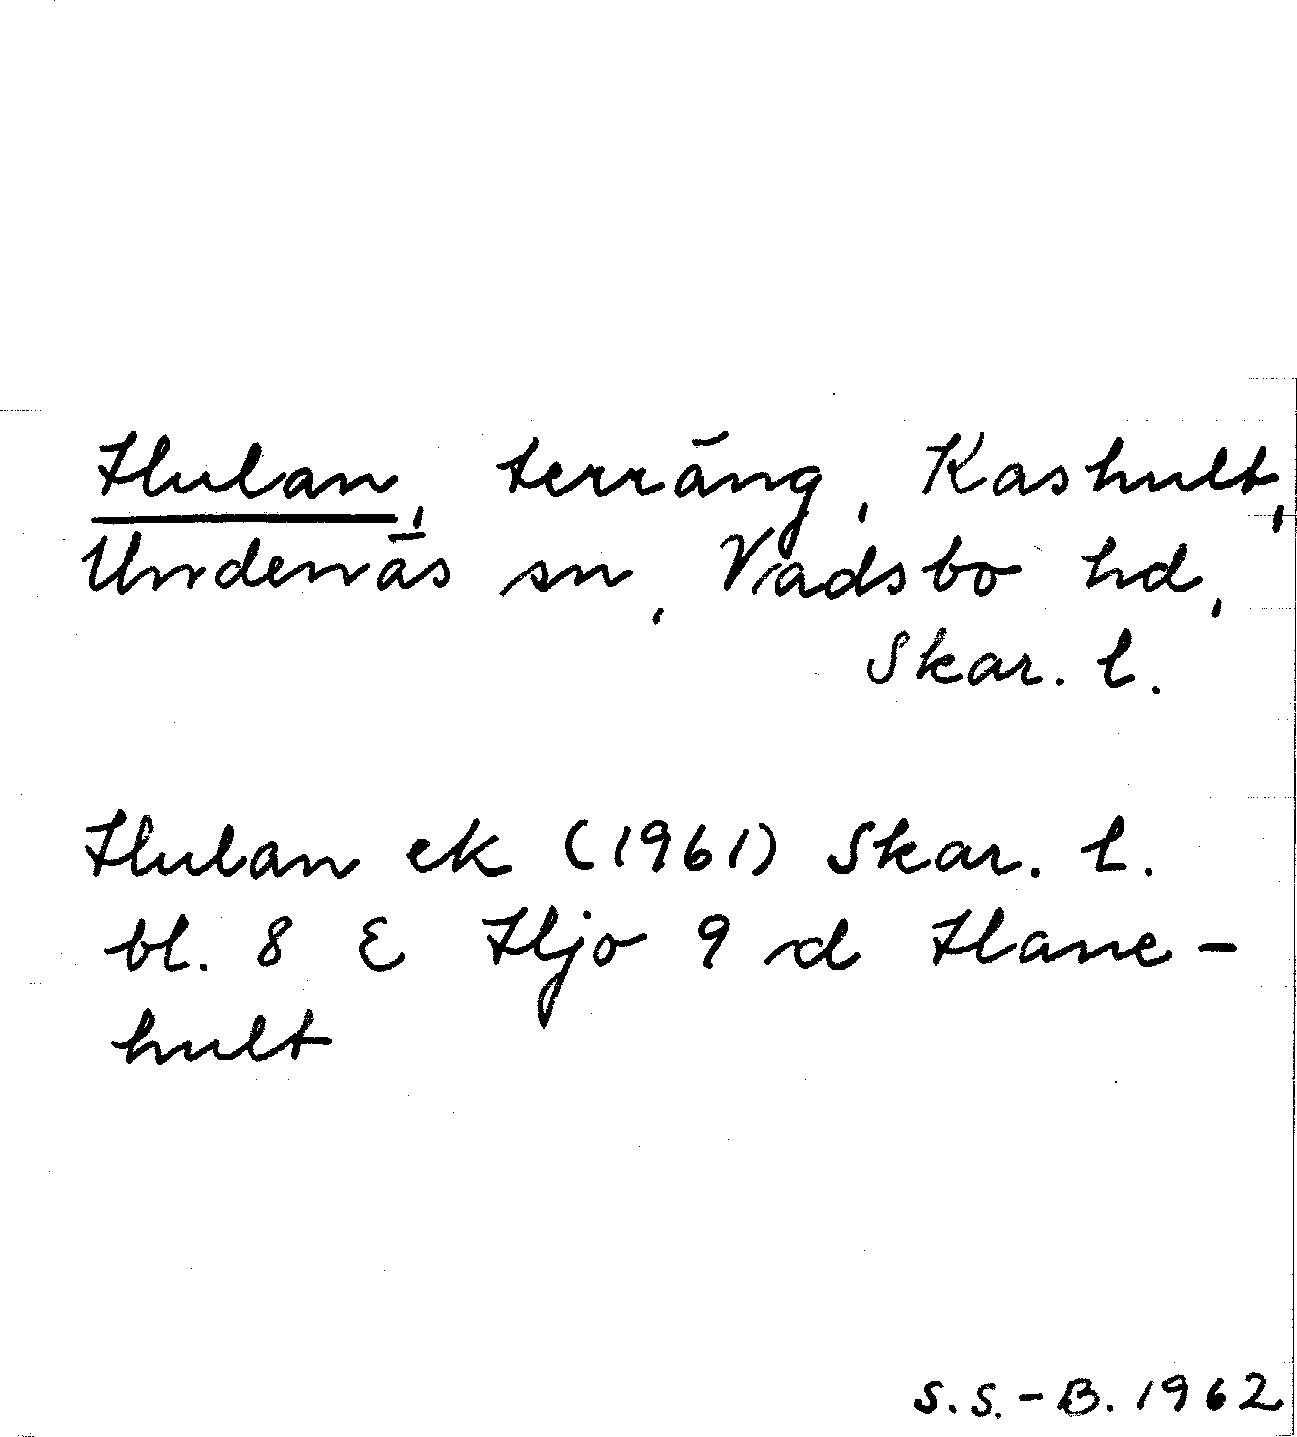 Hulan, terräng, Kashult,
Undenäs sn, Vadsbo hd,
Skar. l.
Hulan ek (1961) Skar. l.
bl. 8 E Hjo 9 d Hane-
hult
S.S.-B. 1962